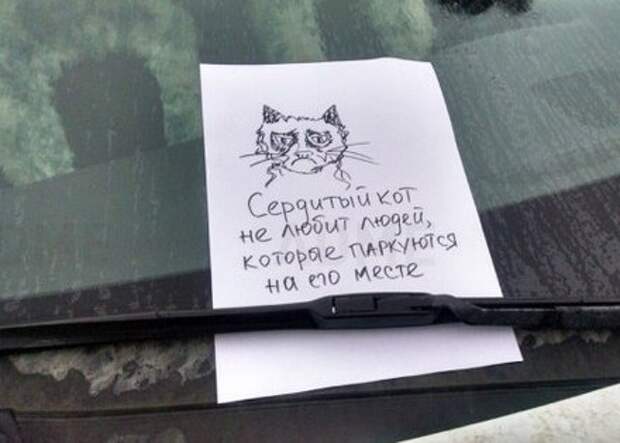 Сердитый кот
не любит людей,
которые паркуются
на его месте